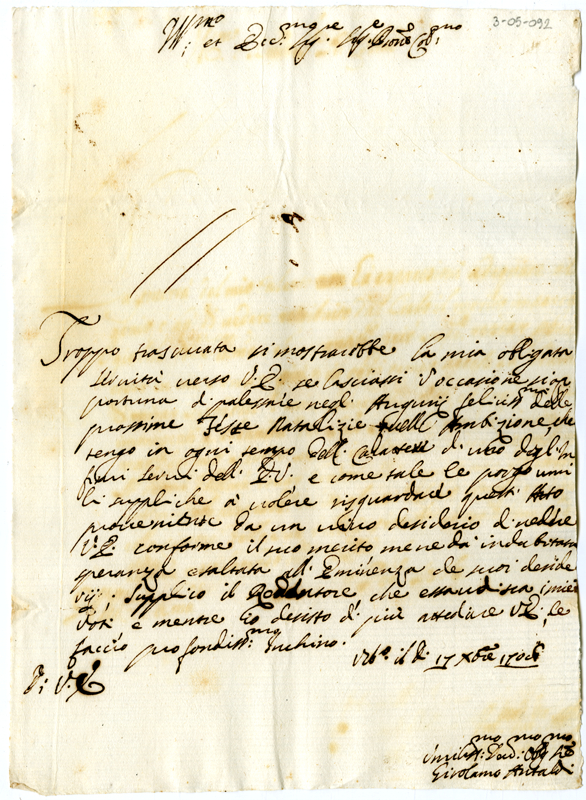 3-05-092
Ill.mo et Ecc.mo Sig.re Sig.re Prone Col.mo
Troppo trascurata si mostrarebbe la mia obligata
servitù verso V.E. se lasciassi l'occasione sì op
portuna di palesarle negl. Augurij felicis.mi delle
prossime Feste Natalizie quell'Ambizione che
tengo in ogni tempo dell. Carattere di uno degl. In
fimi Servi dell' E.V. e come tale le porgo umi
li suppliche à volere risguardare questi Atto
proveniente da un vivo desiderio di vedere
V.E. conforme il suo merito me ne dà indubitata
speranza esaltata all. Eminenza de suoi deside
rij; Supplico il Redentore che essaudisca i miei
Voti e mentre Io desisto di più attediare V.E. le
faccio profondiss.mo Inchino.
Urb.o il dì 17 Xbre
D: V.E.
Umiliss.mo Dev.mo Obl.mo
Girolamo Antaldi